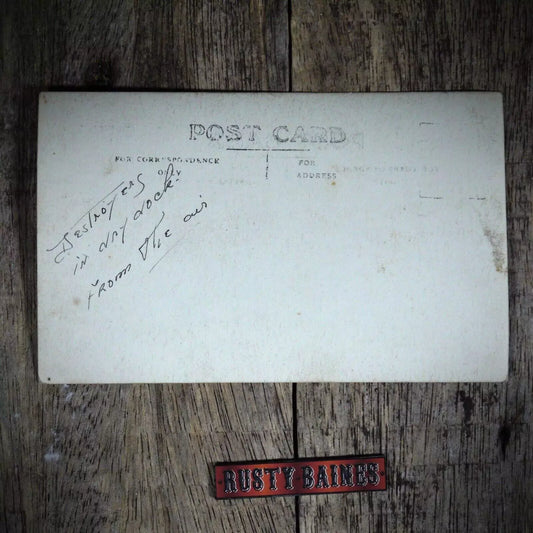 POST CARD
FOR CORRESPONDENCE
ONLY
FOR
ADDRESS
Destroyers
in dry dock.
From the air
RUSTY BAINES